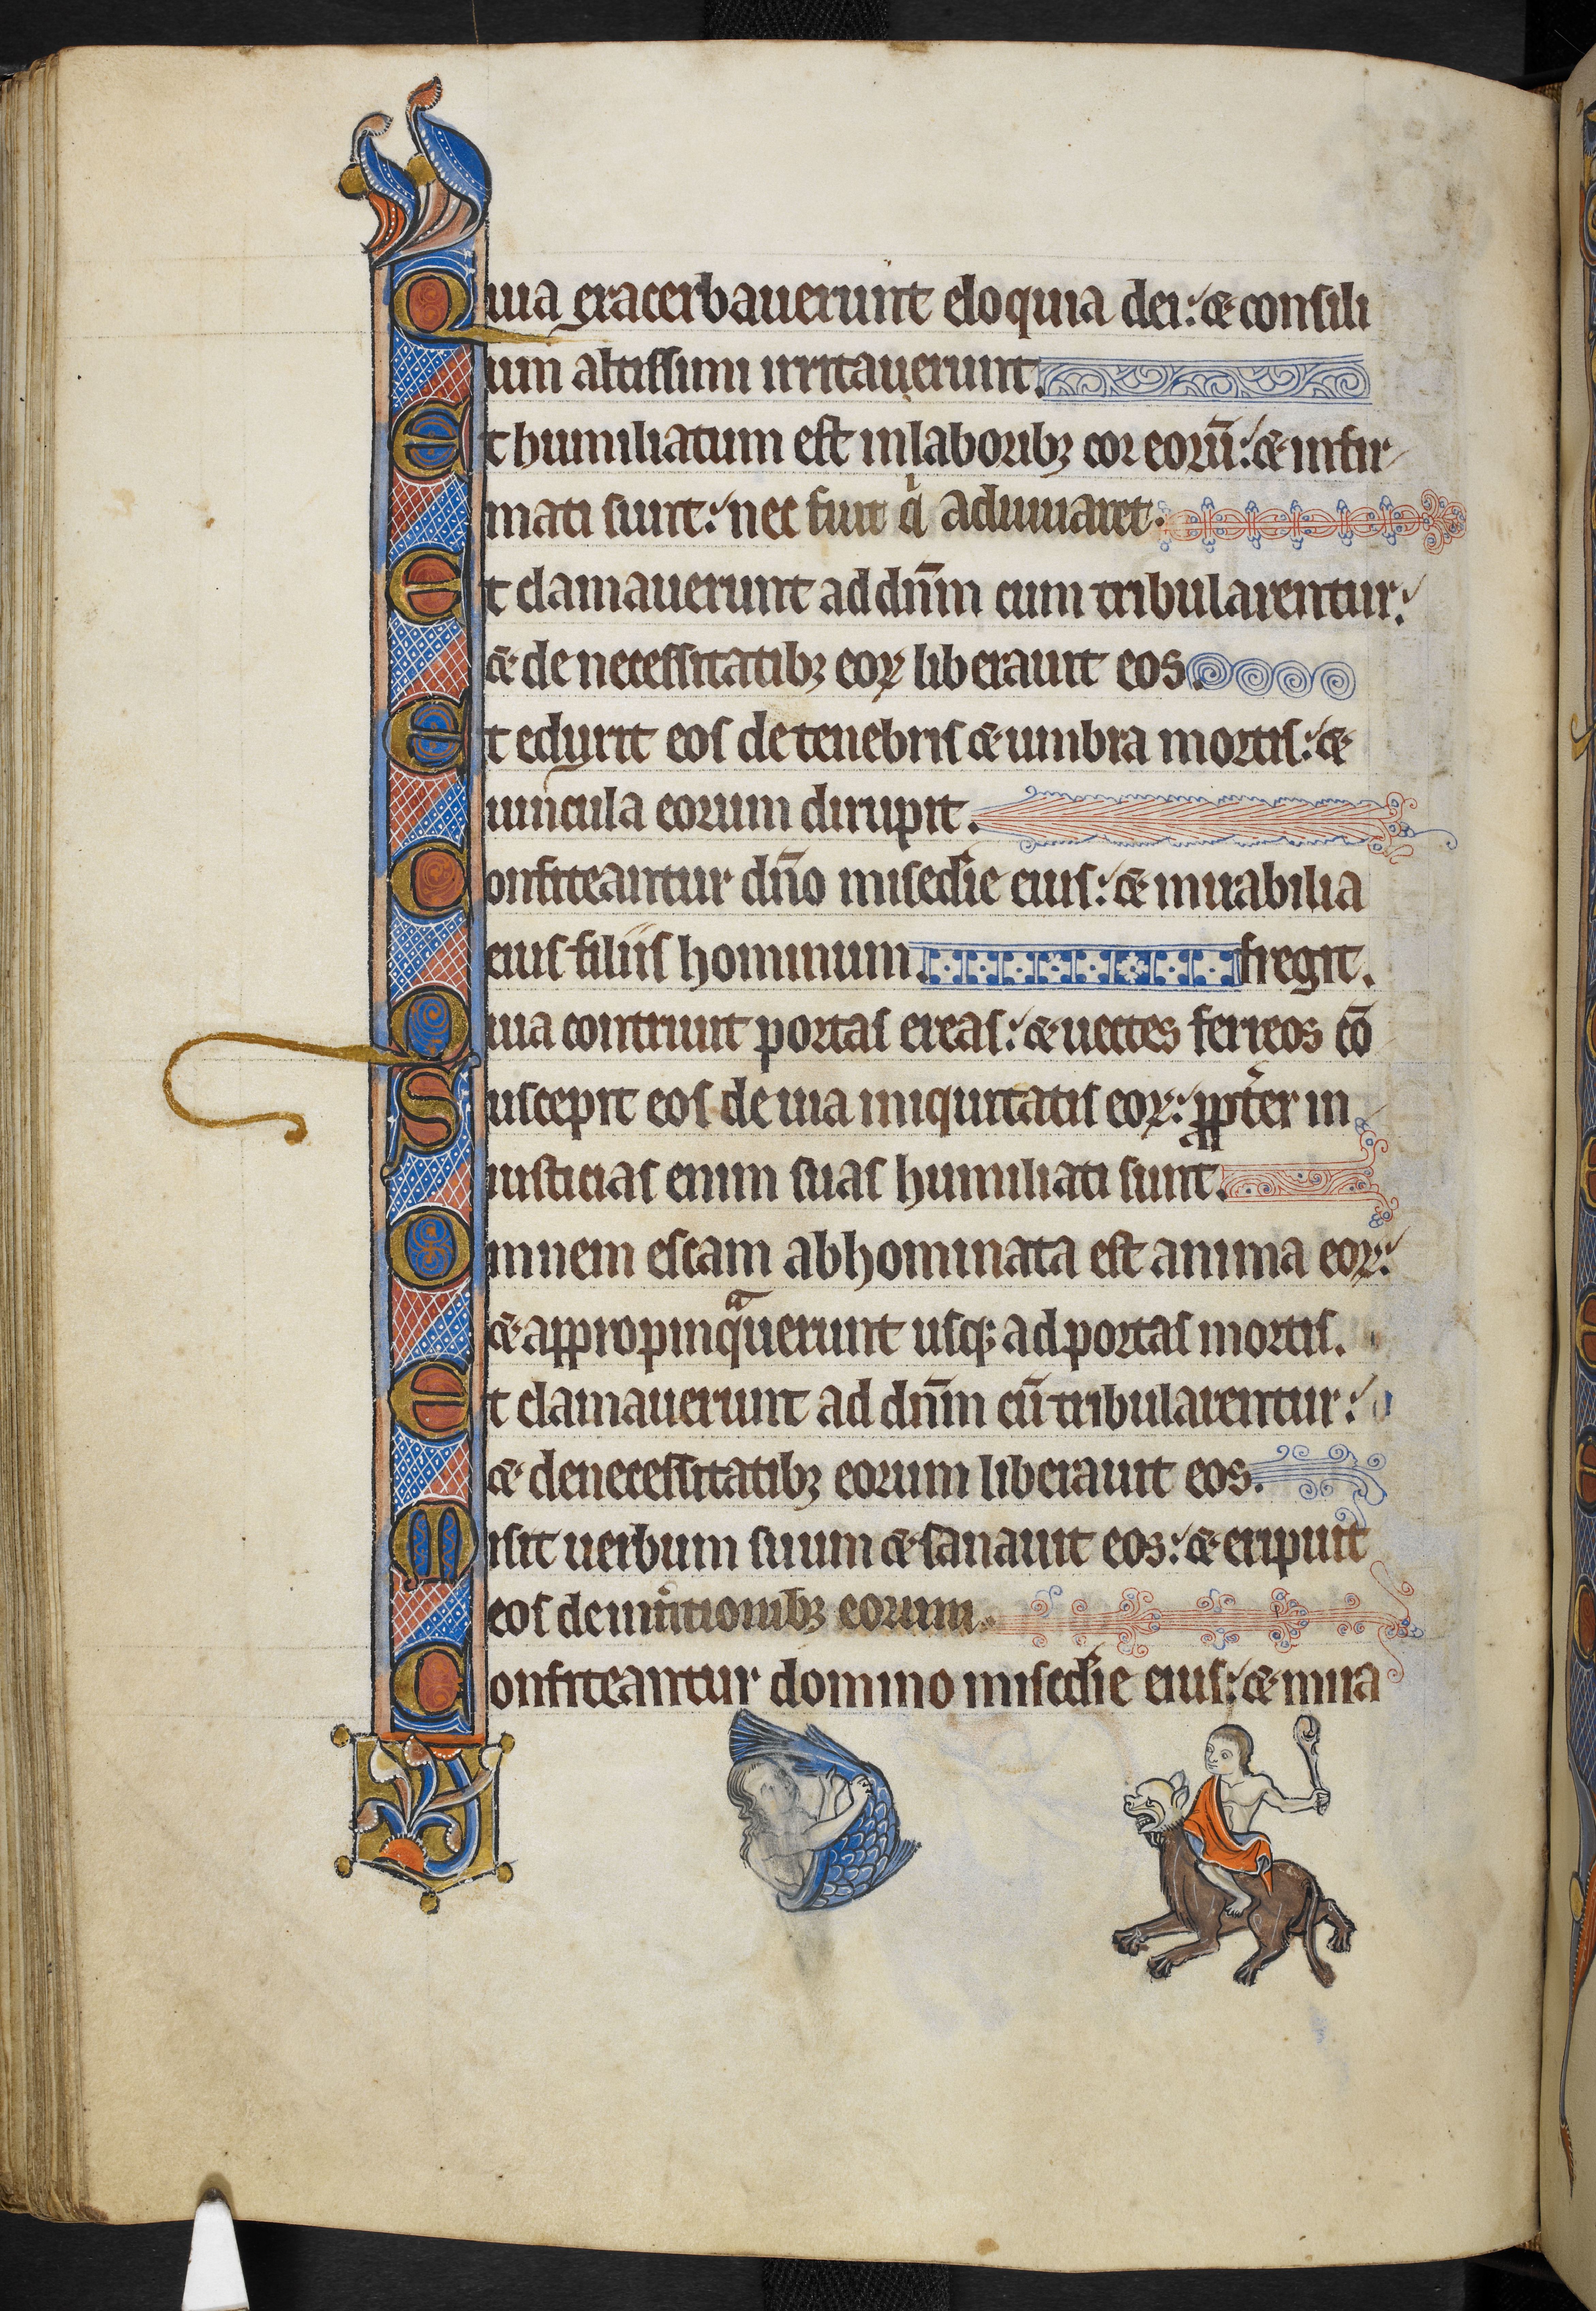 Quia exacerbauerunt eloquia dei: ⁊ consili
um altissimi irritauerunt.
Et humiliatum est in laboribꝫ cor eorū: ⁊ infir
mati sunt: nec fuit qͥ adiuuaret.
Et clamauerunt ad dn̄m cum tribularentur:
⁊ de necessitatibꝫ eoꝝ liberauit eos.
Et eduxit eos de tenebris ⁊ umbra mortis: ⁊
uincula eorum dirupit.
Confiteantur dn̄o mis̄cdie eius: ⁊ mirabilia
eius filiis hominum. fregit.
Quia contriuit portas ereas: ⁊ uectes ferreos cō
Suscepit eos de uia iniquitatis eoꝝ: ꝓpter in
iusticias enim suas humiliati sunt.
Omnem escam abhominata est anima eoꝝ:
⁊ appropinqͣuerunt usqꝫ ad portas mortis.
Et clamauerunt ad dn̄m cū tribularentur:
⁊ de necessitatibꝫ eorum liberauit eos.
Misit uerbum suum ⁊ sanauit eos: ⁊ eripuit
eos de int̄itionibꝫ eorum.
Confiteantur domino mis̄cdie eius: ⁊ mira